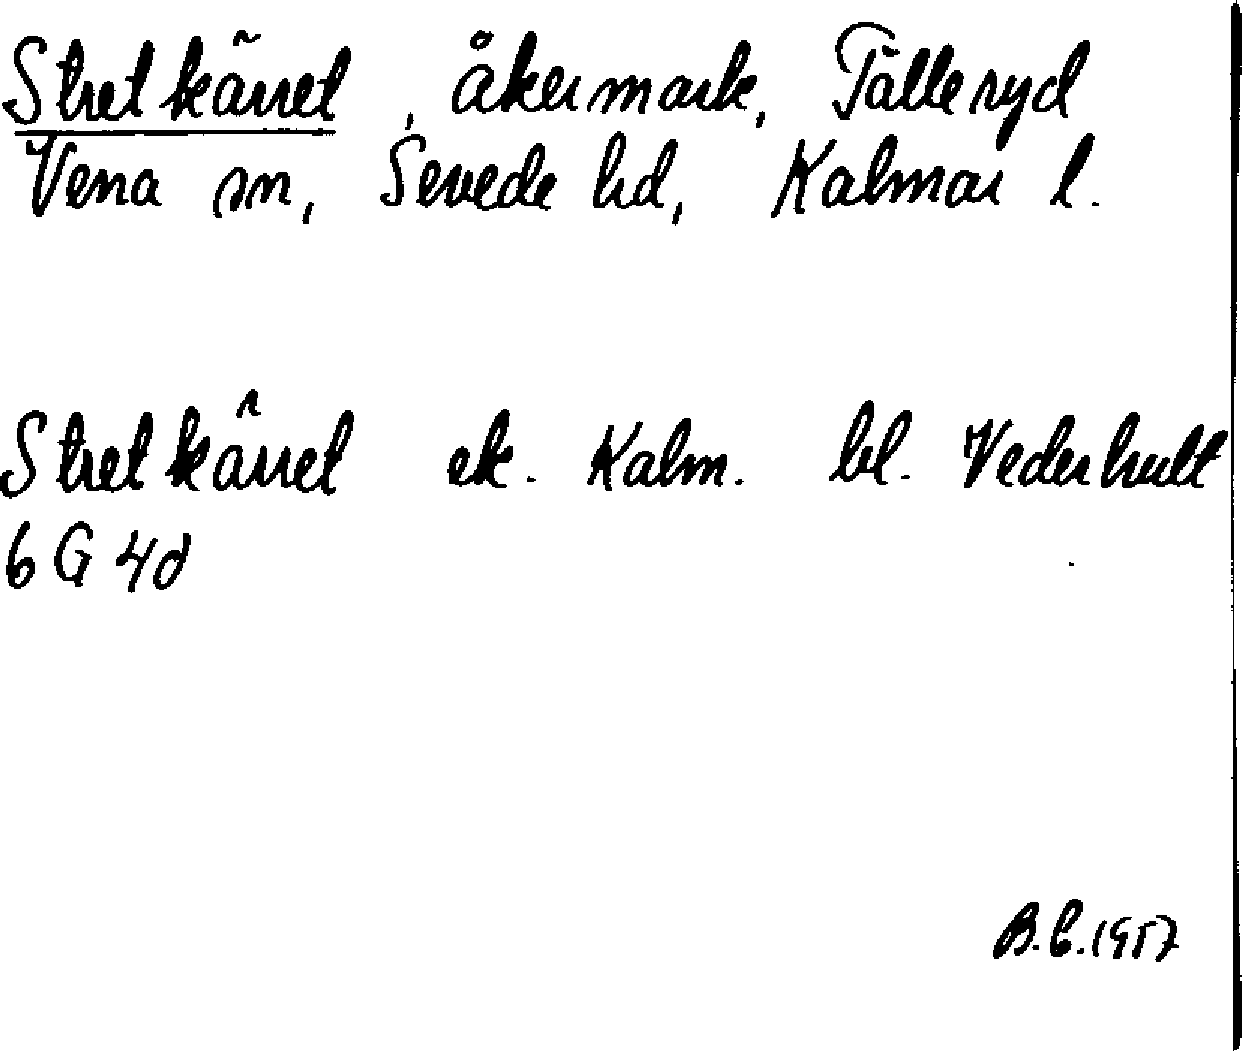 Stretkärret, åkermark, Tälleryd
Vena sn, Sevede hd, Kalmar l.
Stretkärret ek. Kalm. bl. Vederhult
6 G 4d
B.E. 1957